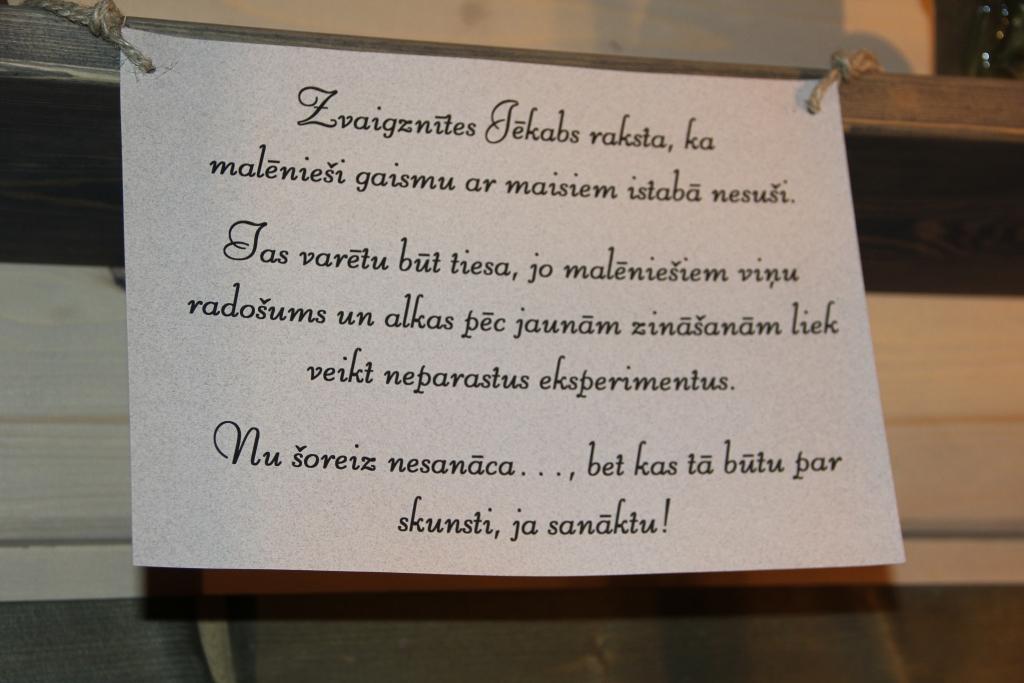 Zvaigznītes Jēkabs raksta, ka
malēnieši gaismu ar maisiem istabā nesuši.
Tas varētu būt tiesa, jo malēniešiem viņu
radošums un alkas pēc jaunām zināšanām liek
veikt neparastus eksperimentus.
Nu šoreiz nesanāca..., bet kas tā būtu par
skunsti, ja sanāktu!